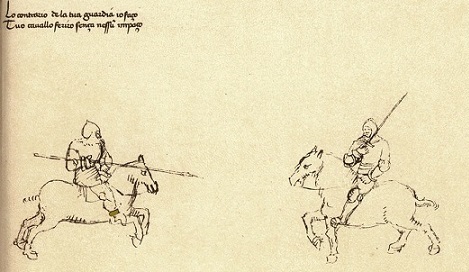 Lo contrario de la tua guardia io faço
Tuo cauallo feriro sença nessũ impaço